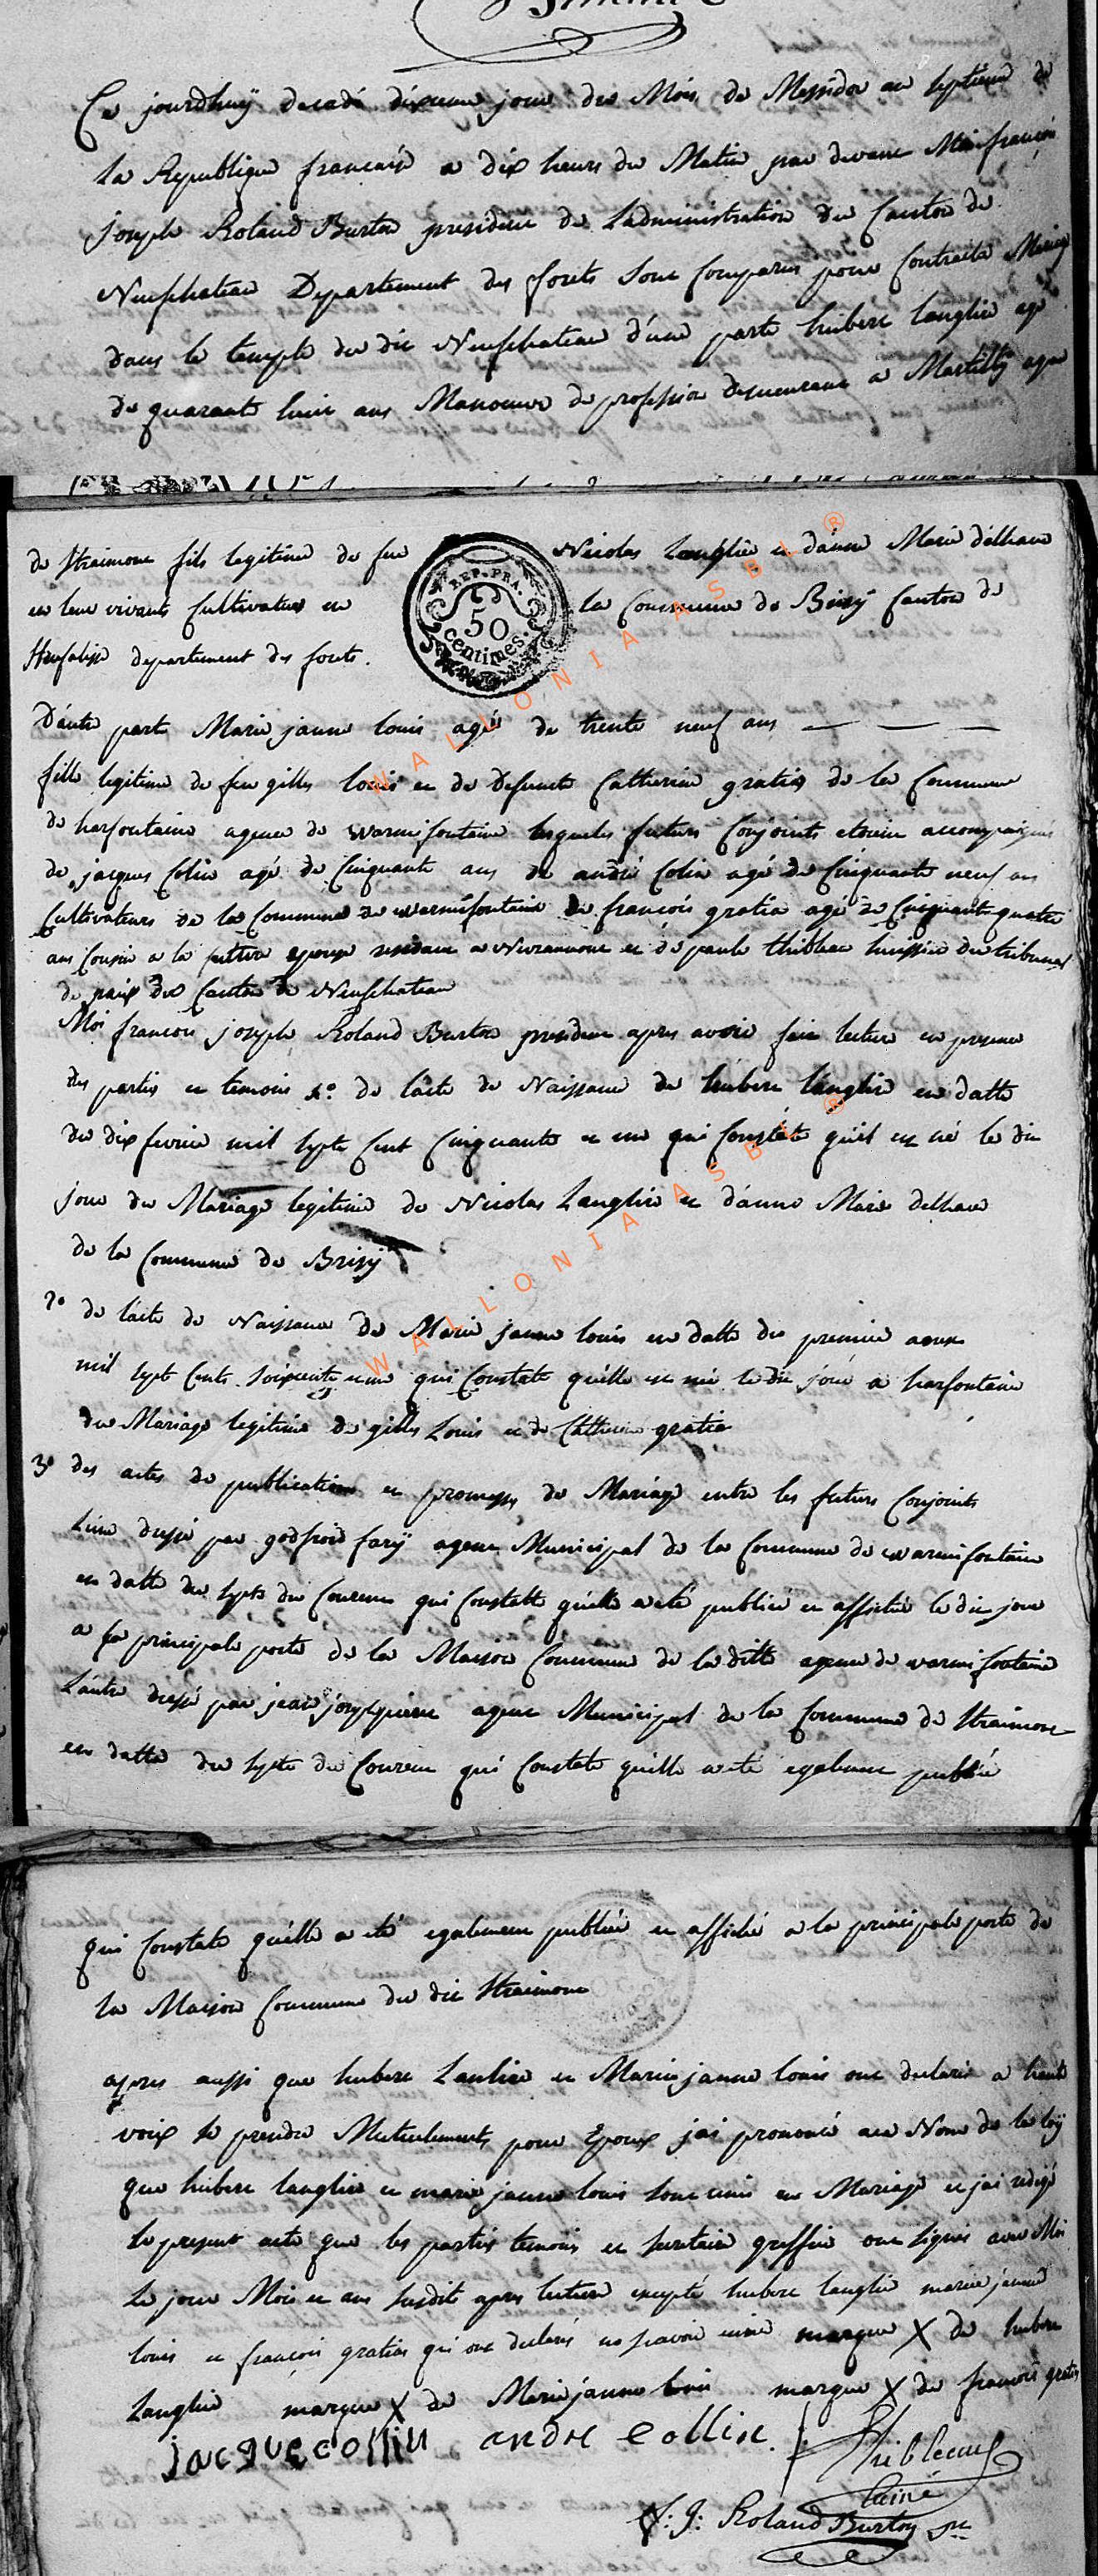 Ce jourdhuÿ decadi dixieme jour du Mois de Messidor an septieme de
la Republique francaise a dix heurs du Matin par devant Moi francois
joseph Roland Burton president de Ladministration du Canton de
Neufchateau Departement des forets sont comparus pour Contracter Mariage
dans le temple du dit Neufchateau d'une parte hubert langlire agé
de quarante huit ans Manoeuvre de profession demeurant a Martilly agence
de Straimont fils legitime de feu Nicolas Langlire et d'anne Marie délhaue
en leur vivants Cultivateurs en la Commune de Brisÿ Canton de
Houfalise departement des forets.
D'autre part Marie janne louis agée de trente neuf ans
fille legitime de feu gilles louis et de defunte Catherine gratia de la Commune
de harfontaine agence de warmifontaine lesquels futurs Conjoints etoient accompagnés
de jacques Colin agé de Cinquante ans de andré Colin agé de Cinquante neuf ans
Cultivateurs de la Commune de warmifontaine de francois gratia agé de Cinquante quatre
ans Cousin a la future epouse residant a et de paule thibleau huissier du tribunal
de paix du Canton de Neufchateau
Moi francois joseph Roland Burton president apres avoir fait lecture en presence
des partis et temoins 1º de lacte de Naissance de hubert langlire en datte
du dix fevrier mil sept Cent Cinquante et un qui Constate quil est né le dit
jour du Mariage legitime de Nicolas Langlire et d'anne Marie delhaue
de la Commune de Brisÿ
2º de lacte de Naissance de Marie janne louis en datte du premier aoust
mil sept Cents soixante et un qui Constate quélle est née le dit jour a harfontaine
du Mariage legitime de gilles Louis et de Catherine gratia
3º des actes de publication et promesses de Mariage entre les futurs Conjoints
Lune dressé par godfroid fary agent Municipal de la Commune de warmifontaine
en datte du sept du Courent qui Constatte quélle a eté publiée et affichée le dit jour
a la principale porte de la Maison Commune de la ditte agence de warmifontaine
Lautre dressé par jean josephpierre agent Municipal de la Commune de Straimont
en datte du septe du Courent qui Constate quélle a eté egalement publiée
qui Constate quélle a eté egalement publiée et affichée a la principale porte de
la Maison Commune du dit Straimont
apres aussi que hubert Lanlire et Marie janne louis ont declarés a haute
voix se prendre Mutuelements pour Epoux jai prononcé au Nom de la loÿ
que hubert langlire et marie janne louis sont unis en Mariage et jai redigé
le present acte que les partis temoins et secretaire greffier ont signés avec Moi
Le jour Mois et ans susdit apres lecture excepté hubert langlire marie janne
louis et francois gratia qui ont declarés ne scavoir ecrire marque X de hubert
Langlire marque X de Marie janne louis marque X de francois gratia
jacque collin andre collin. Thibleau
lainé
f: J: Roland Burton pr
REP. FRA.
50
centimes.
WALLONIA ASBL ®
WALLONIA ASBL ®